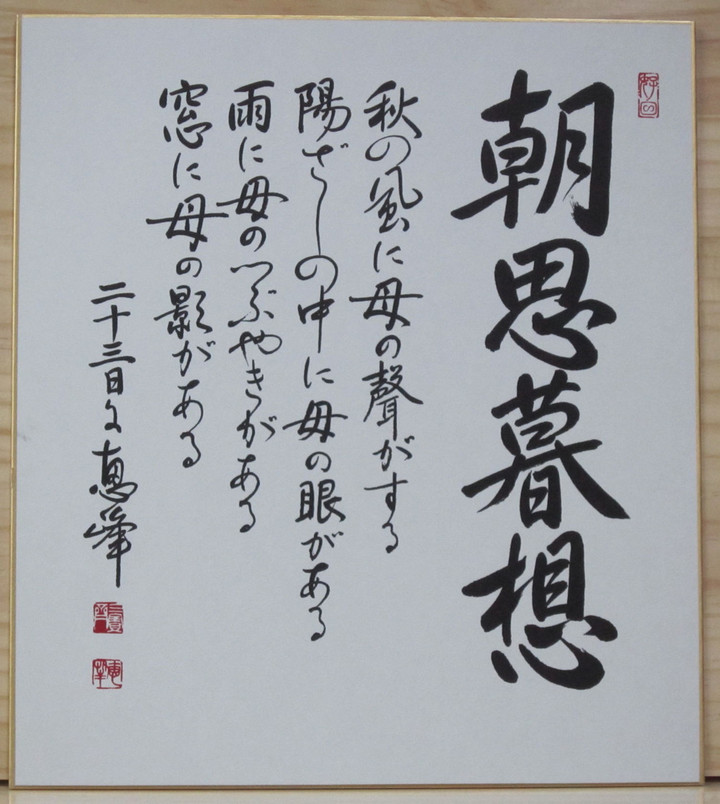 朝思暮想
秋の風に母の聲がする
陽ざしの中に母の眼がある
雨に母のつぶやきがある
窓に母の影がある
二十三日夕 恵峰